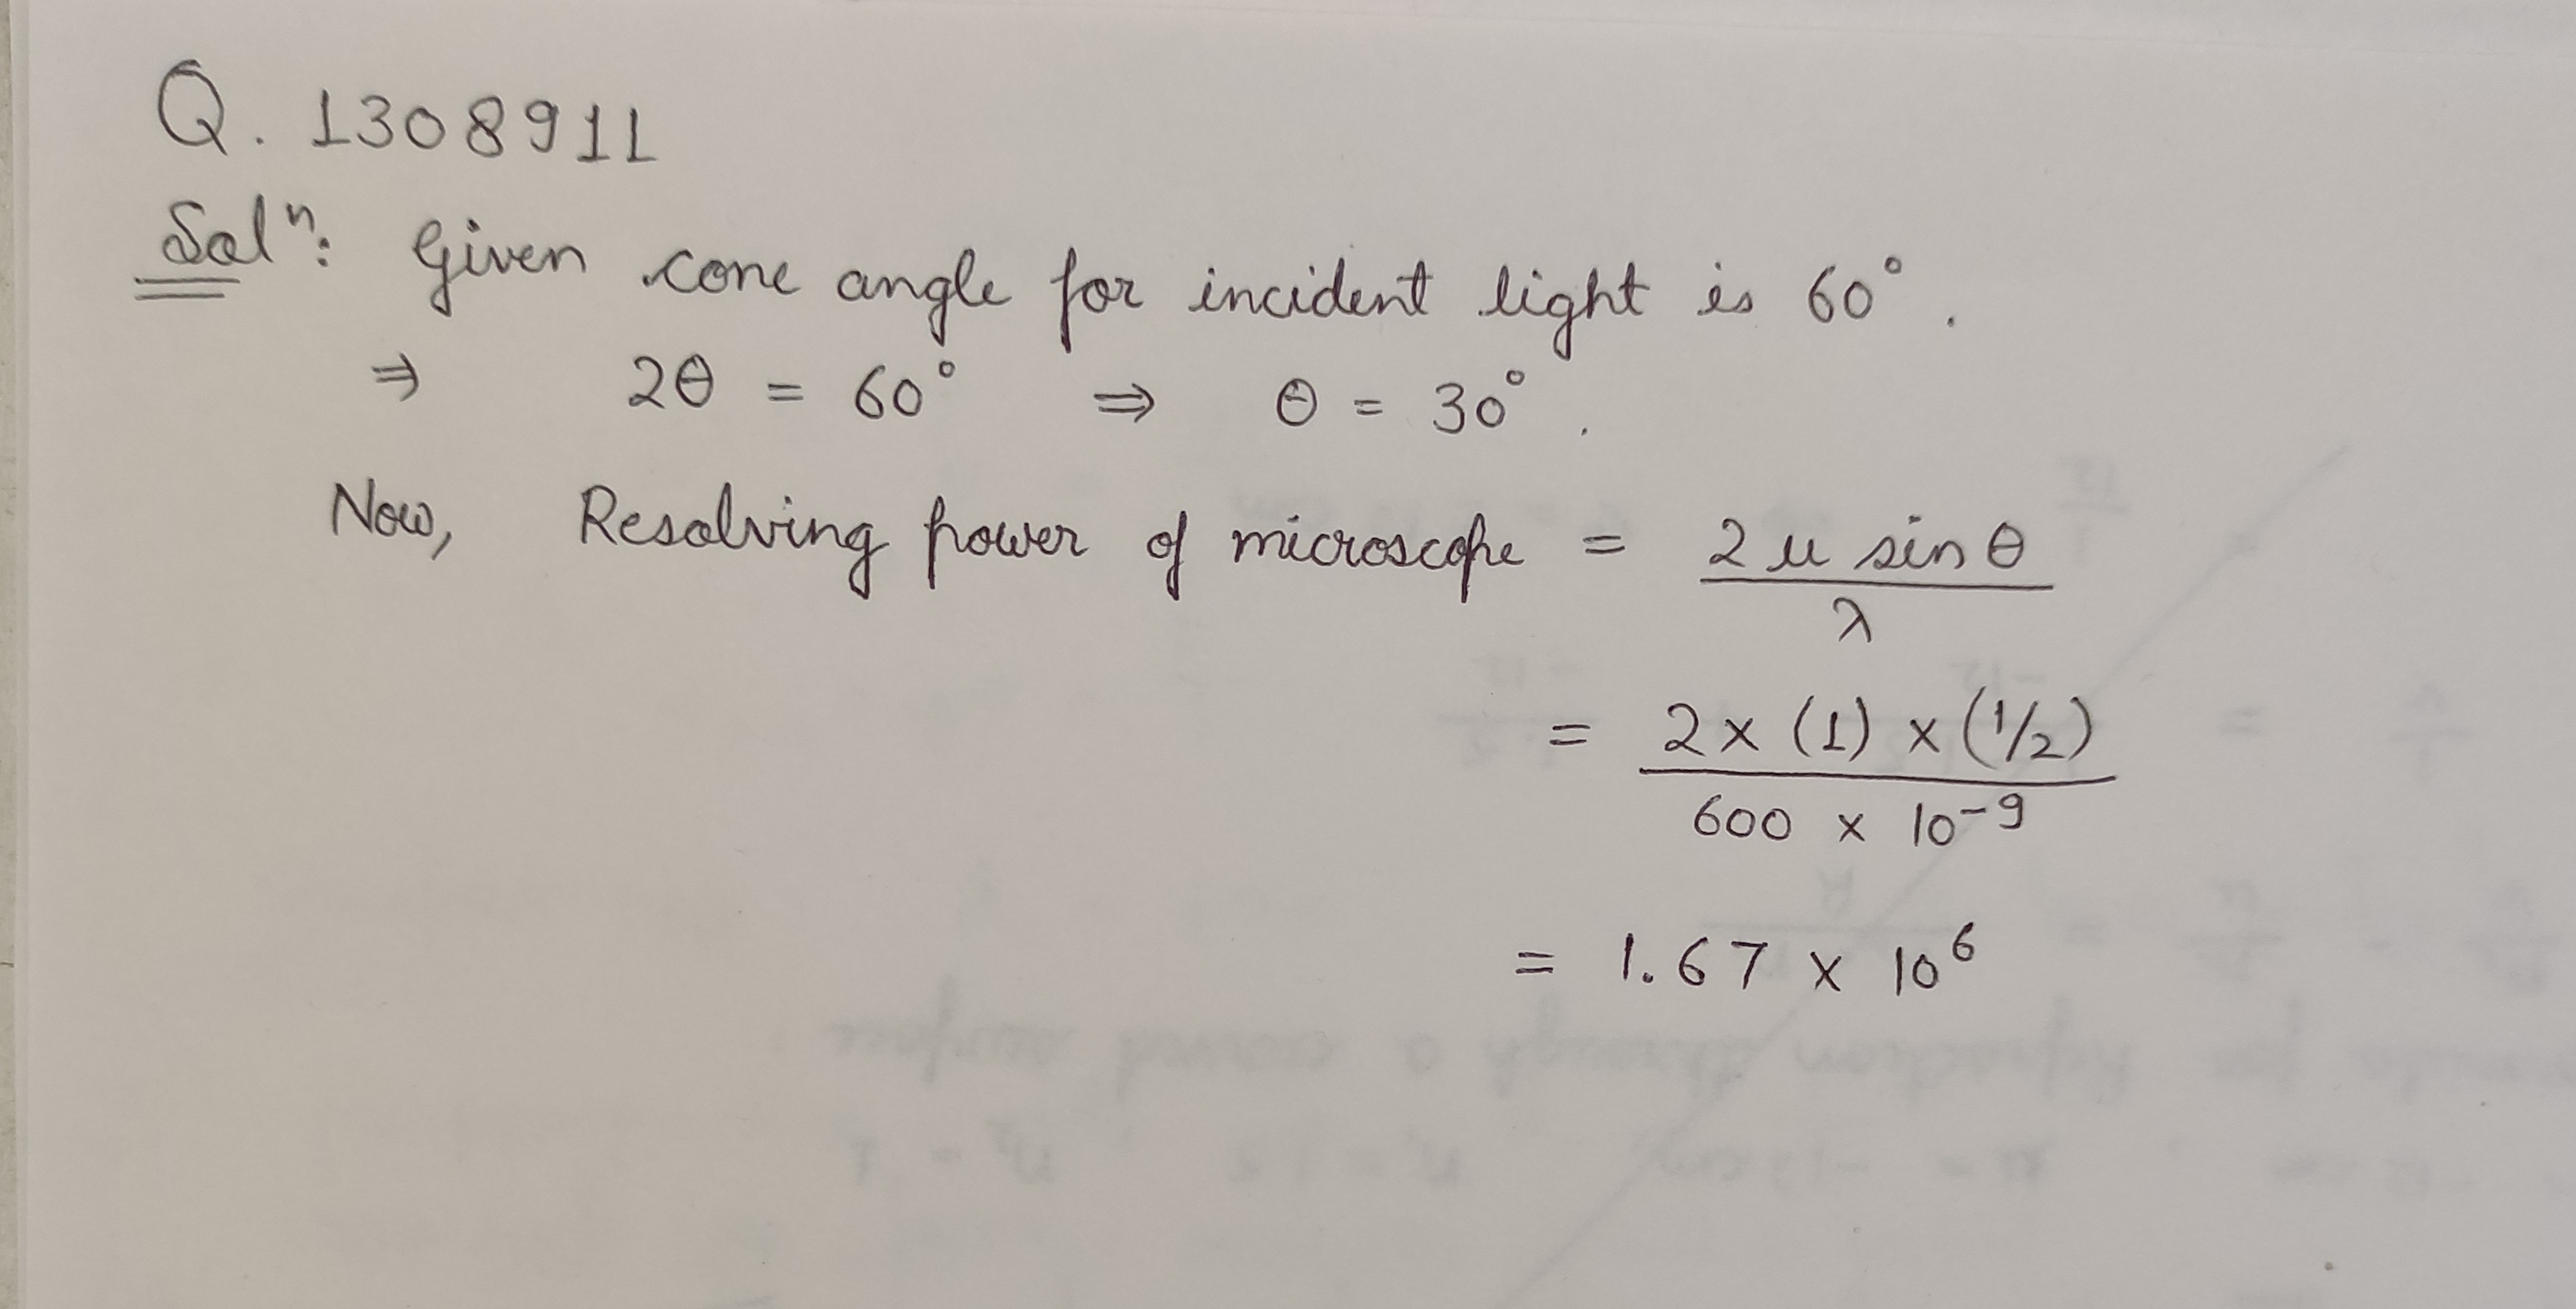 Q. 1308911
Solⁿ: Given cone angle for incident light is 60°.
⇒ 2θ = 60° ⇒ θ = 30°.
Now, Resolving power of microscope = 2 μ sin θ / λ
= 2 × (1) × (1/2) / 600 × 10⁻⁹
= 1.67 × 10⁶